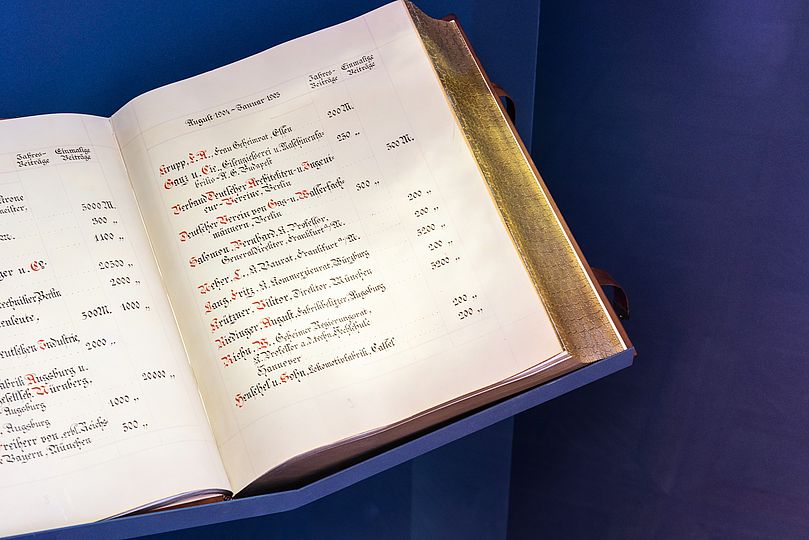 Jahres- Einmalige
Beiträge Beiträge
5000 M.
300 „
1100 „
20500 „
2000 „
500 M. 1000 „
eutschen Industrie,
2000 „
abrik Augsburg u.
Nürnberg,
Augsburg
20000 „
Augsburg
1000 „
reiherr von
Bayern, München
500 „
Jahres- Einmalige
Beiträge Beiträge
August 1904 – Januar 1905
Krupp, F. A., Frau Geheimrat, Essen
200 M.
Ganz u. Cie., Eisengießerei u. Maschinenfa-
briks-A. G. Budapest
250 „
Verband Deutscher Architekten- u. Ingeni-
eur-Vereine, Berlin
500 M.
Deutscher Verein von Gas- u. Wasserfach-
männern, Berlin
300 „
Salomon, Bernhard, K. Professor,
Generaldirektor, Frankfurt a/M.
200 „
Neher, L., K. Baurat, Frankfurt a/M.
200 „
Lang, Fritz, K. Kommerzienrat, Würzburg
5200 „
Krützner, Viktor, Direktor, München
200 „
Riedinger August, Fabrikbesitzer, Augsburg
5200 „
Riehn, W., Geheimer Regierungsrat,
K. Professor a. d. techn. Hochschule
Hannover
200 „
Henschel u. Sohn, Lokomotivfabrik, Cassel
200 „